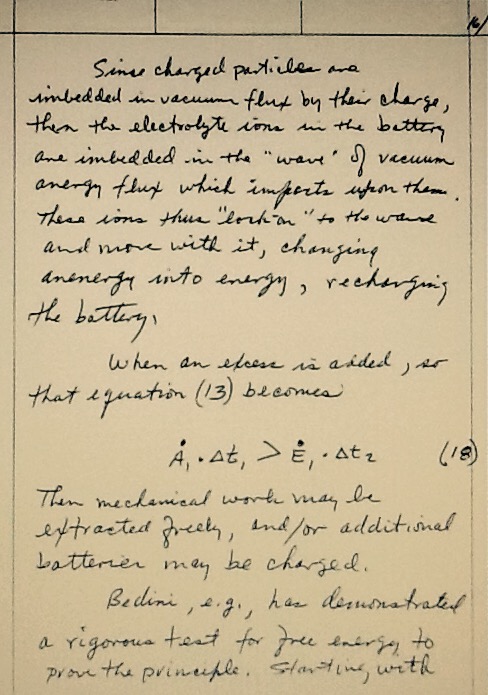 16/
Since charged particles are
imbedded in vacuum flux by their charge,
then the electrolyte ions in the battery
are imbedded in the "wave" of vacuum
anergy flux which impacts upon them.
These ions thus "lock-on" to the wave
and move with it, changing
anenergy into energy, recharging
the battery.
When an excess is added, so
that equation (13) becomes
Ȧ₁ · Δt₁ > Ė₁ · Δt₂ (18)
Then mechanical work may be
extracted freely, and/or additional
batteries may be charged.
Bedini, e.g., has demonstrated
a rigorous test for free energy to
prove the principle. Starting with